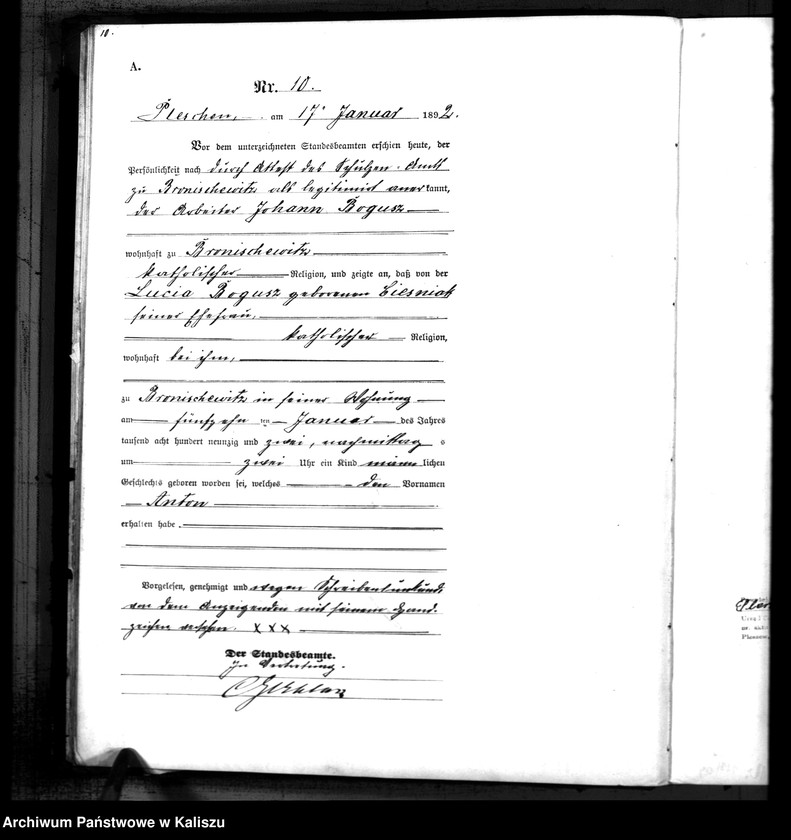 10.
A.
Nr. 10.
Pleschen, am 17. Januar 1892.
Vor dem unterzeichneten Standesbeamten erschien heute, der
Persönlichkeit nach durch Attest des Schulzen-Amts
zu Bronischewitz als legitimirt anerkannt,
der Arbeiter Johann Bogusz
wohnhaft zu Bronischewitz
katholischer Religion, und zeigte an, daß von der
Lucia Bogusz geborenen Ciesniak
seiner Ehefrau,
katholischer Religion,
wohnhaft bei ihm,
zu Bronischewitz in seiner Wohnung
am fünfzehnten Januar des Jahres
tausend acht hundert neunzig und zwei, nachmittags
um zwei Uhr ein Kind männlichen
Geschlechts geboren worden sei, welches den Vornamen
Anton
erhalten habe.
Vorgelesen, genehmigt und wegen Schreibensunkunde
von dem Anzeigenden mit seinem Hand-
zeichen versehen. XXX
Der Standesbeamte.
In Vertretung.
Archiwum Państwowe w Kaliszu